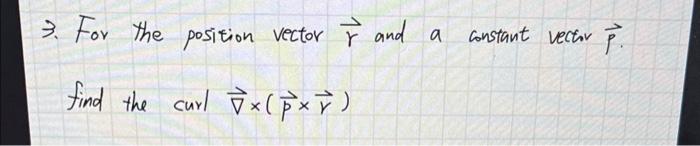 3. For the position vector r⃗ and a constant vector p⃗.
find the curl ∇⃗×(p⃗×r⃗)